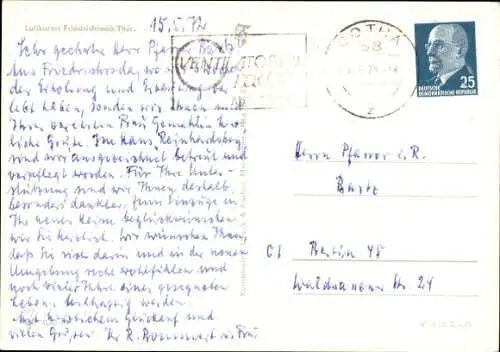 Luftkurort Friedrichroda Thür.
15.5.72
Sehr geehrter Herr Pfarrer Bartz
Aus Friedrichroda, wo wir Wochen
der Erholung und Erbauung ver-
lebt haben, senden wir Ihnen mit
Ihrer verehrten Frau Gemahlin herz-
liche Grüße. Im Haus "Reinhardsberg"
sind wir ausgezeichnet betreut und
verpflegt worden. Für Ihre Unter-
stützung sind wir Ihnen deshalb
besonders dankbar. Zum Einzuge in
Ihr neues Heim beglückwünschen
wir Sie herzlich. Wir wünschen Ihnen,
daß Sie sich darin und in der neuen
Umgebung recht wohlfühlen und
noch vieler Jahre eines gesegneten
Lebens teilhaftig werden.
Mit herzlichem Glückauf und
vielen Grüßen Ihr R. u. Frau
VENTILATOREN
GOTHA
58
z
DEUTSCHE
DEMOKRATISCHE REPUBLIK
25
Herrn Pfarrer i. R.
Bartz
Berlin 45
Str. 24